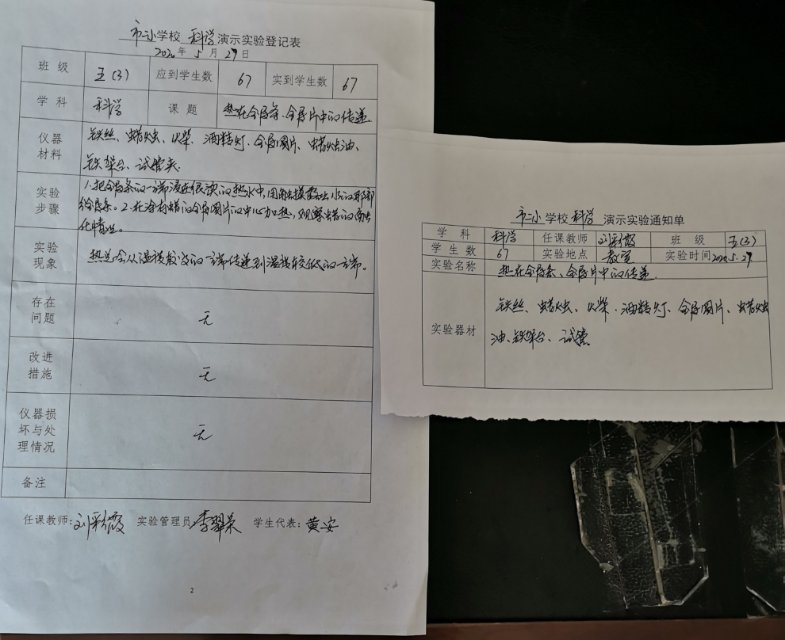 市二小学校 科学 演示实验登记表
2020年5月29日
班级 五(3) 应到学生数 67 实到学生数 67
学科 科学 课题 热在金属条、金属片中的传递
仪器材料 铁丝、蜡烛、火柴、酒精灯、金属圆片、蜡烛油、
铁架台、试管夹
实验步骤 1.把金属条的一端浸在很烫的热水中,用手摸露出水的那部
给金属条。2.在涂有蜡的金属圆片的中心加热,观察蜡的熔
化情况。
实验现象 热总会从温度较高的一端传递到温度较低的一端。
存在问题 无
改进措施 无
仪器损坏与处理情况 无
备注
任课教师:刘彩霞 实验管理员 李翠荣 学生代表:黄安
2
市二小 学校 科学 演示实验通知单
学科 科学 任课教师 刘彩霞 班级 五(3)
学生数 67 实验地点 教室 实验时间 2020.5.29
实验名称 热在金属条、金属片中的传递
实验器材 铁丝、蜡烛、火柴、酒精灯、金属圆片、蜡烛
油、铁架台、试管